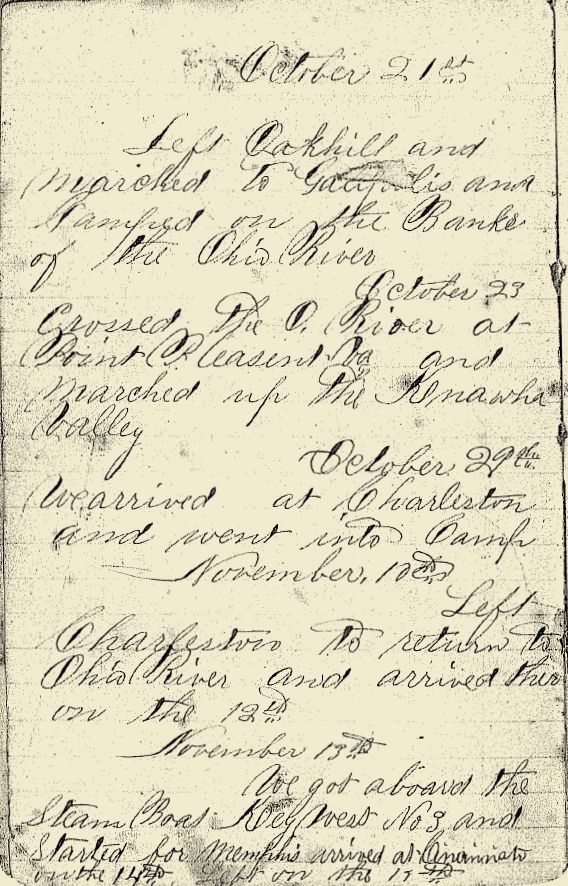 October 21st
Left Oakhill and
Marched to Gallipolis and
Camped on the Banks
of the Ohio River
October 23
Crossed The O. River at
Point Pleasent Va and
Marched up The Knawha
Valley
October, 29th
We arrived at Charleston
and went into Camp
November, 10th
Left
Charleston To return to
Ohio River and arrived ther
on the 12th
November 13th
We got aboard the
Steam Boat Key West No 3 and
Started for Memphis arrived at Cincinnato
on the 14th, Left on the 15th